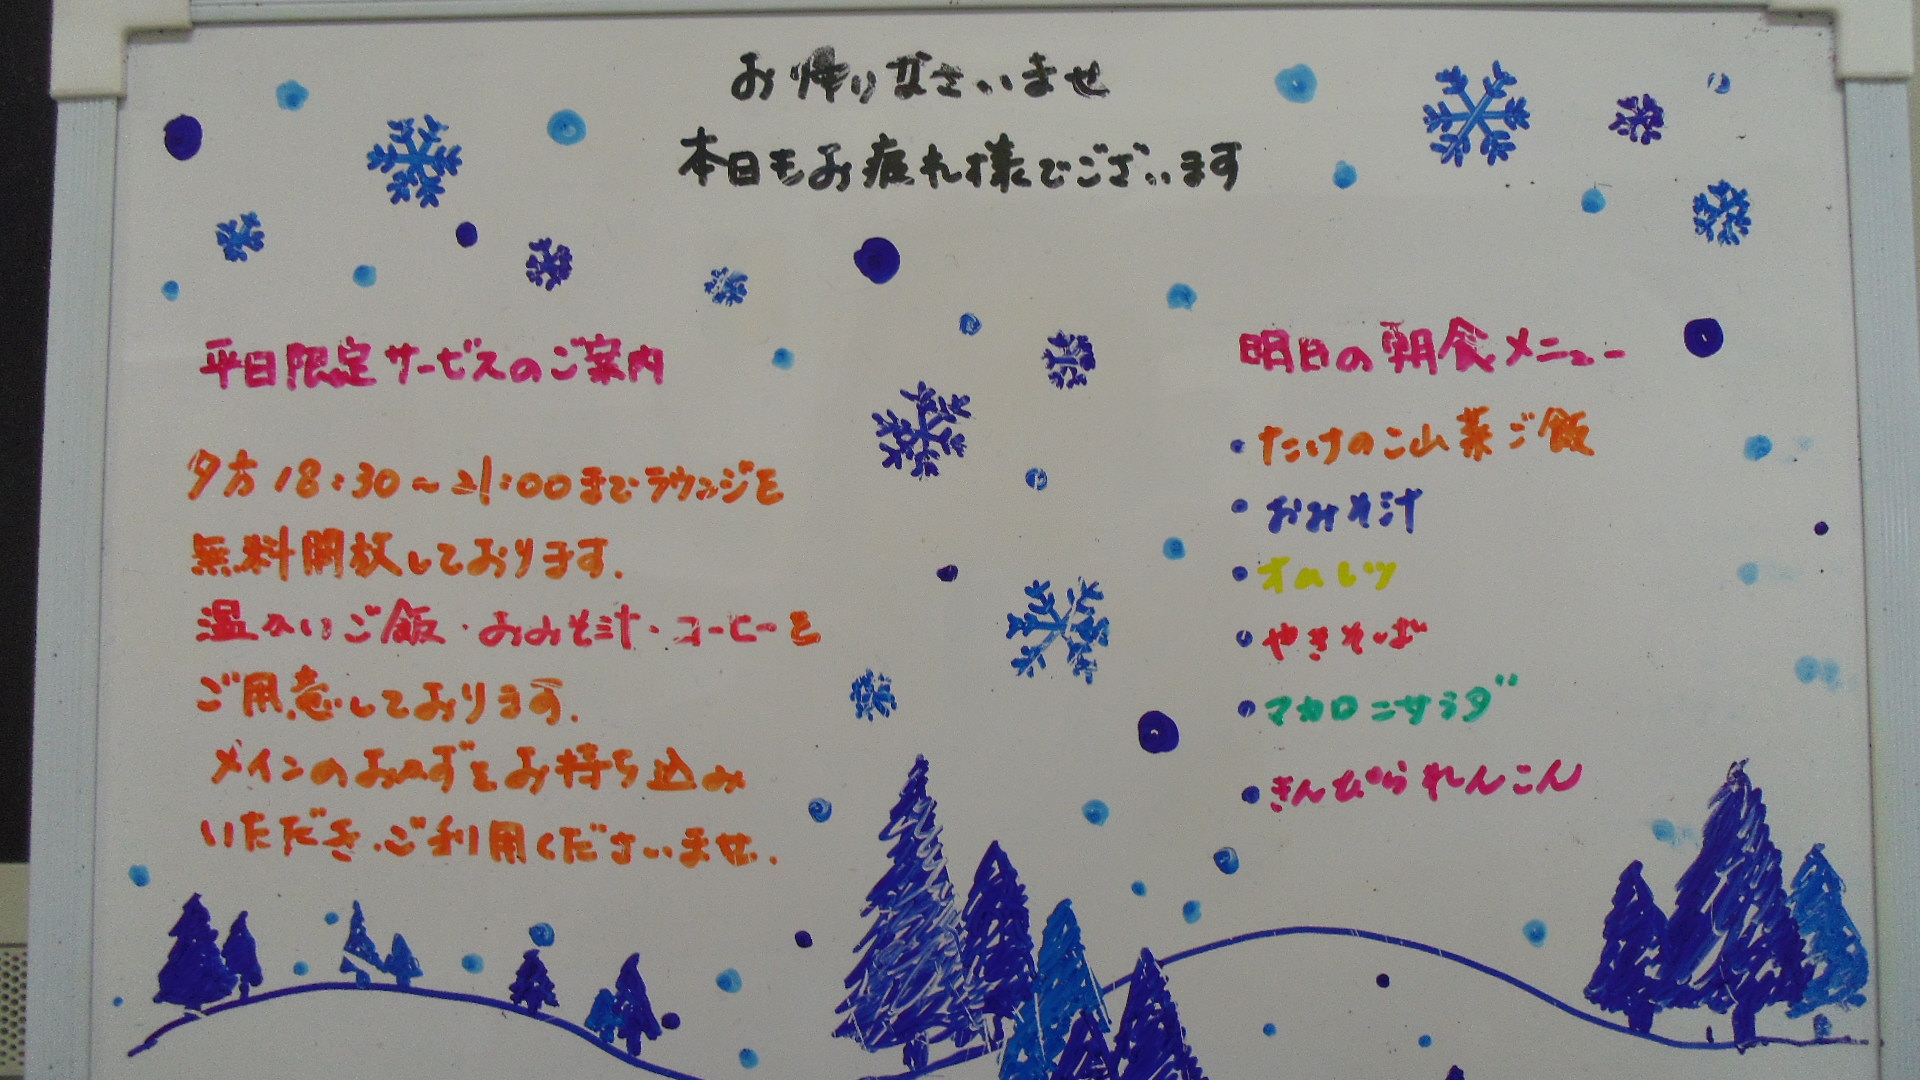 お帰りなさいませ
本日もお疲れ様でございます
平日限定サービスのご案内
夕方18:30～21:00までラウンジを
無料開放しております.
温かいご飯・おみそ汁・コーヒーを
ご用意しております.
メインのおかずをお持ち込み
いただき.ご利用くださいませ.
明日の朝食メニュー
・たけのこ山菜ご飯
・おみそ汁
・オムレツ
・やきそば
・マカロニサラダ
・きんぴられんこん